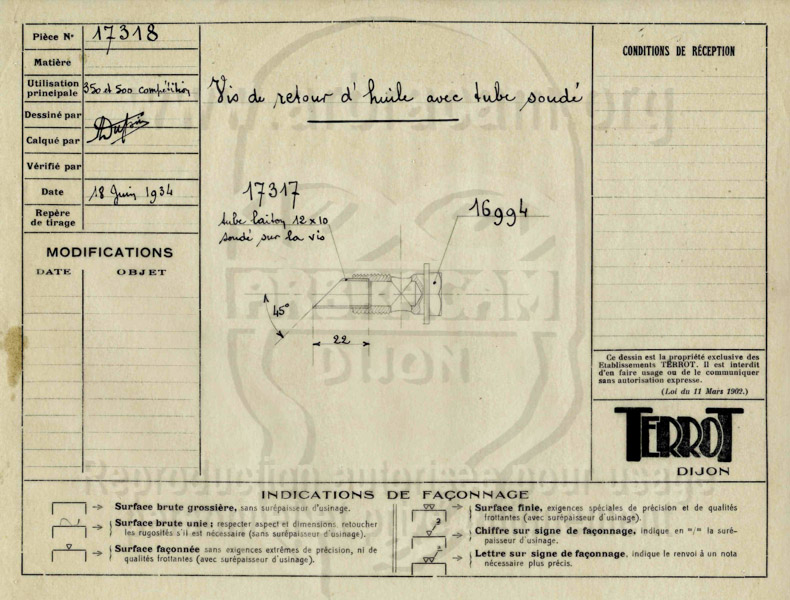 Pièce N° 17318
Matière
Utilisation principale 350 et 500 compétition
Dessiné par
Calqué par
Vérifié par
Date 18 Juin 1934
Repère de tirage
MODIFICATIONS
DATE OBJET
Vis de retour d'huile avec tube soudé
17317
tube laiton 12 x 10
soudé sur la vis
16994
45°
22
CONDITIONS DE RÉCEPTION
Ce dessin est la propriété exclusive des
Etablissements TERROT. Il est interdit
d'en faire usage ou de le communiquer
sans autorisation expresse.
(Loi du 11 Mars 1902.)
TERROT
DIJON
INDICATIONS DE FAÇONNAGE
Surface brute grossière, sans surépaisseur d'usinage.
Surface brute unie ; respecter aspect et dimensions, retoucher
les rugosités s'il est nécessaire (sans surépaisseur d'usinage).
Surface façonnée sans exigences extrêmes de précision, ni de
qualités frottantes (avec surépaisseur d'usinage).
Surface finie, exigences spéciales de précision et de qualités
frottantes (avec surépaisseur d'usinage).
3
Chiffre sur signe de façonnage, indique en m/m la suré-
paisseur d'usinage.
Lettre sur signe de façonnage, indique le renvoi à un nota
nécessaire plus précis.
DIJON
Reproduction autorisée pour usage